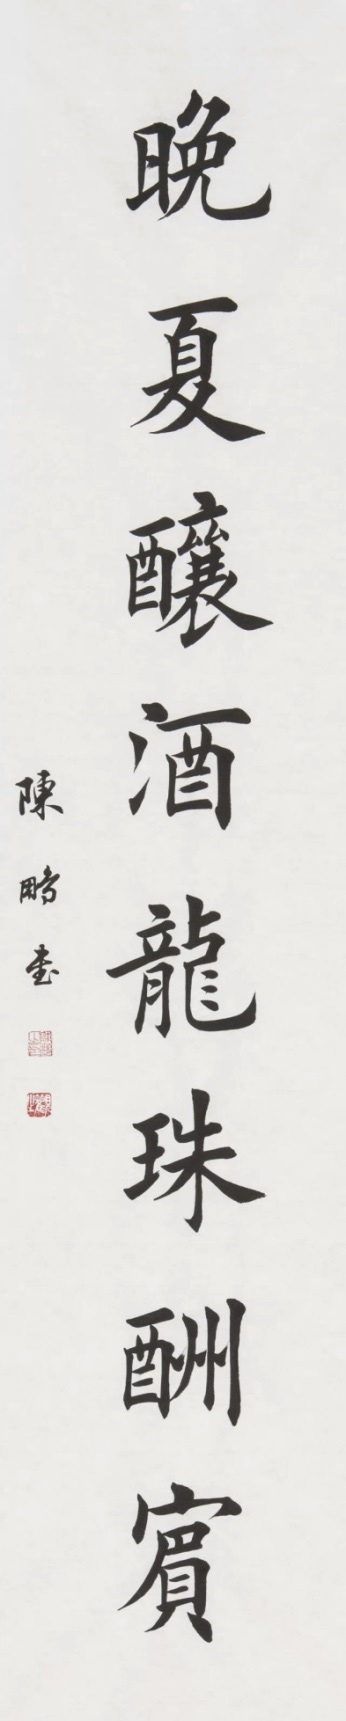 晚夏釀酒龍珠酬賓
陳鵬書